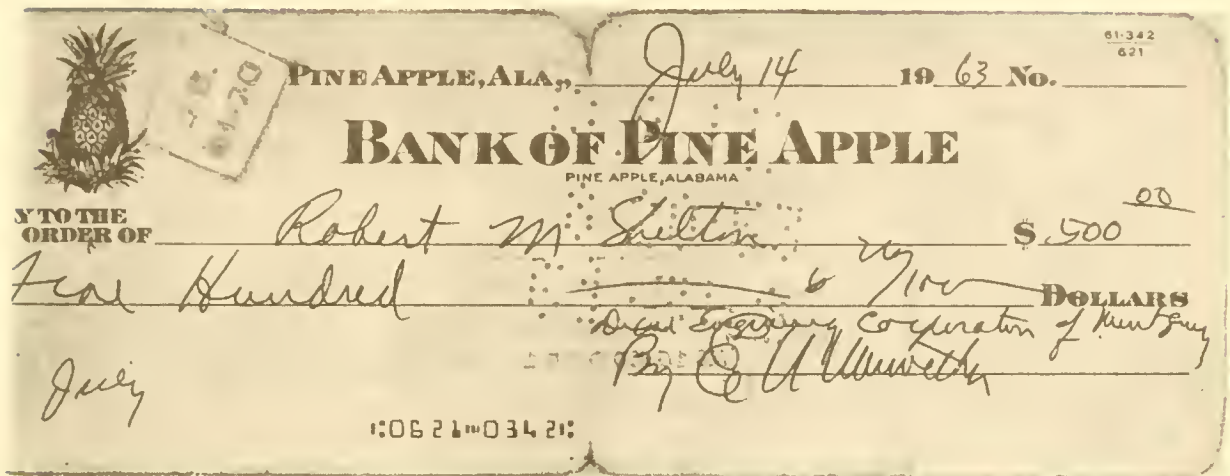 61-342
621
PINE APPLE, ALA., July 14 19 63 No.
BANK OF PINE APPLE
PINE APPLE, ALABAMA
Y TO THE
ORDER OF Robert M Shelton $ 500 00
Five Hundred /100 DOLLARS
Corporation of
By
July
⑆0621⑉0342⑆